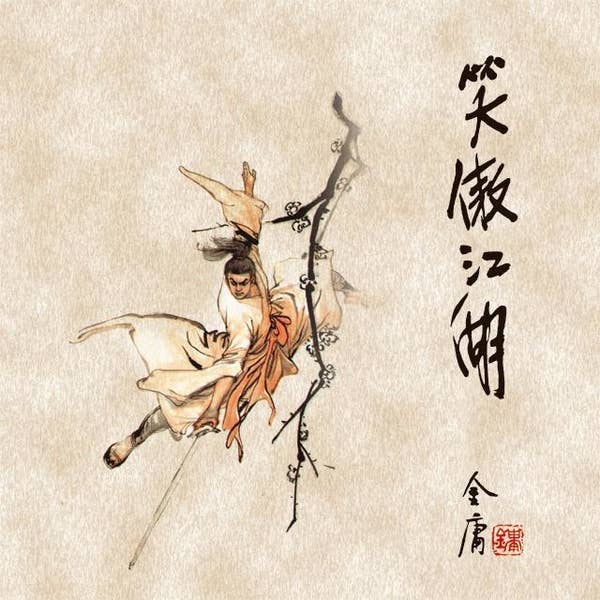 笑傲江湖
金庸